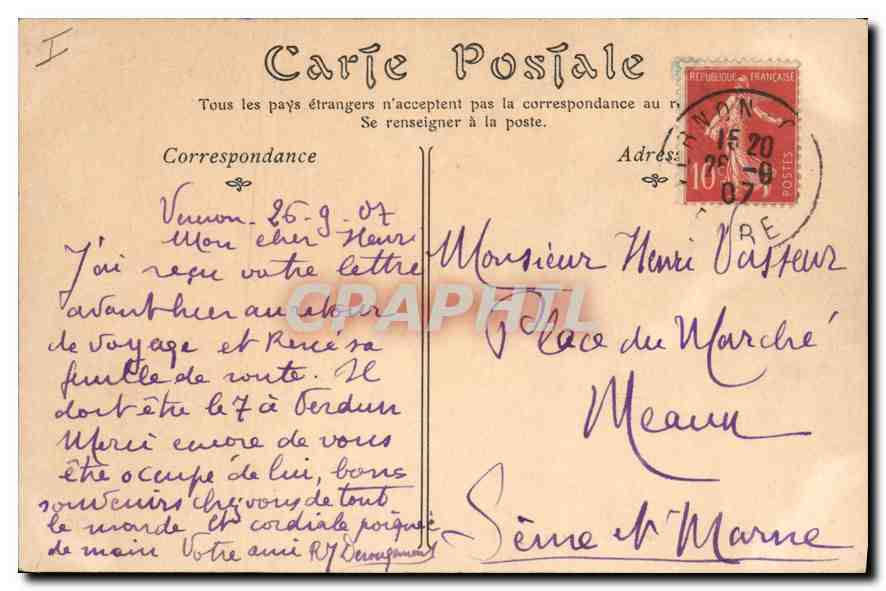 I
Carte Postale
Tous les pays étrangers n'acceptent pas la correspondance au
Se renseigner à la poste.
Correspondance
Adress
RÉPUBLIQUE FRANÇAISE
10c
POSTES
RNON
15 20
26 -9
07
RE
Vernon - 26-9-07
Mon cher Henri
J'ai reçu votre lettre
avant hier au retour
de voyage et René sa
feuille de route. Il
doit être le 7 à Verdun
Merci encore de vous
être occupé de lui, bons
souvenirs chez vous de tout
le monde Et cordiale poignée
de main Votre ami
Monsieur Henri Vasseur
Place du Marché
Meaux
Seine et Marne
CPAPHIL